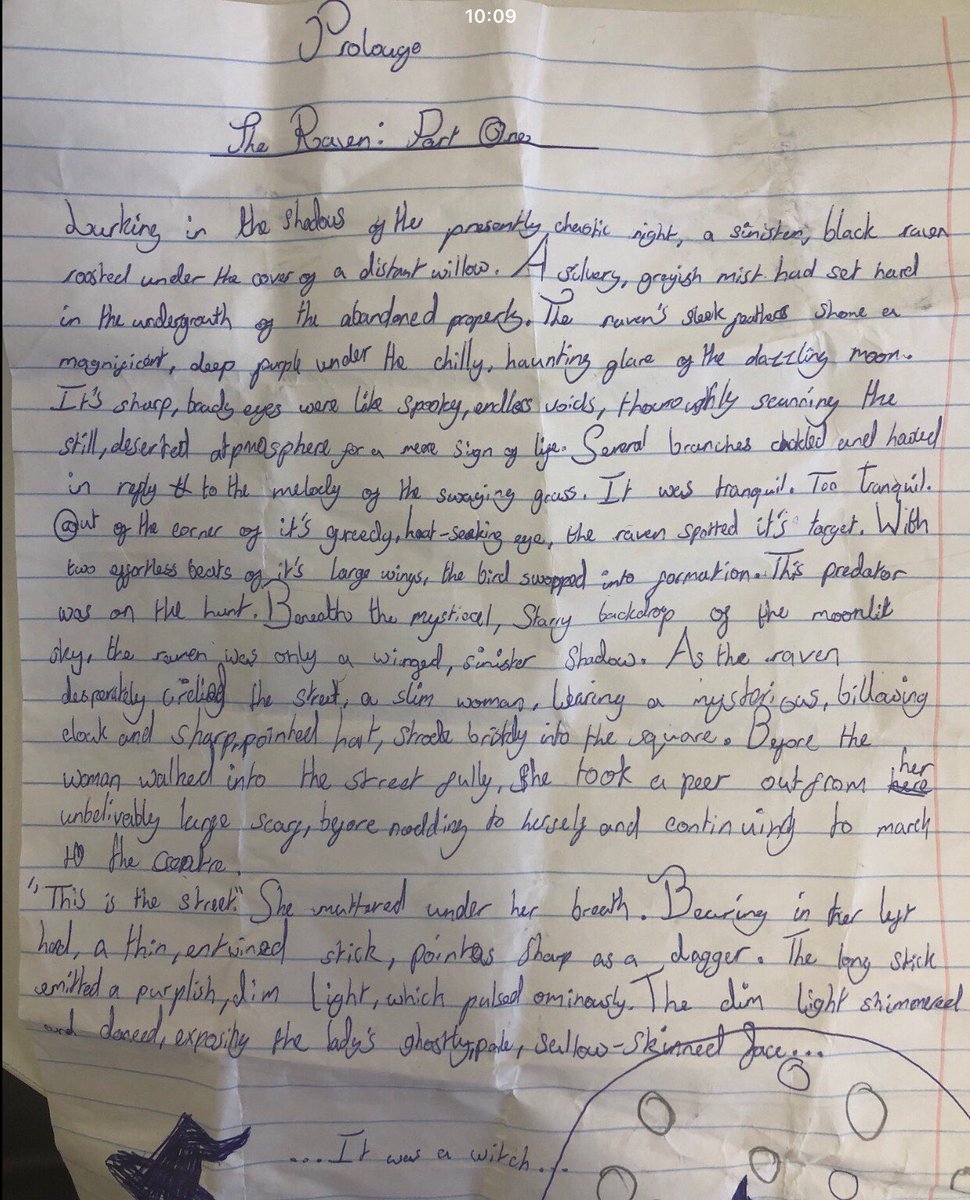 10:09
Prolouge
The Raven: Part One
Lurking in the shadows of the presently chaotic night, a sinister, black raven
roasted under the cover of a distant willow. A silvery, greyish mist had set hard
in the undergrowth of the abandoned property. The raven's sleek feathers shone a
magnificant, deep purple under the chilly, haunting glare of the dazzling moon.
It's sharp, beady eyes were like spooky, endless voids, thouroughly scanning the
still, deserted atpmosphere for a mere sign of life. Several branches and
in reply to the melody of the swaying grass. It was tranquil. Too tranquil.
Out of the corner of it's greedy, heat-seeking eye, the raven spotted it's target. With
two effortless beats of it's large wings, the bird swooped into formation. This predator
was on the hunt. Beneath the mystical, starry backdrop of the moonlit
sky, the raven was only a winged, sinister shadow. As the raven
desperately circled the street, a slim woman, wearing a mysterious, billowing
cloak and sharp, pointed hat, strode briskly into the square. Before the
woman walked into the street fully, she took a peer out from her
unbelivably large scarf, before nodding to herself and continuing to march
to the centre.
"This is the street." She muttered under her breath. Bearing in her left
hand, a thin, entwined stick, pointed sharp as a dagger. The long stick
emitted a purplish, dim light, which pulsed ominously. The dim light shimmered
and danced, exposing the lady's ghostly, pale, sallow-skinned face...
...It was a witch...